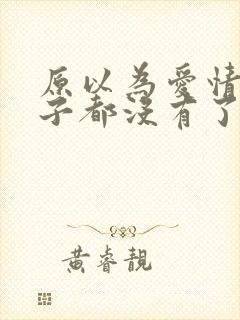 原以為愛情
子都沒有了
黃睿靚